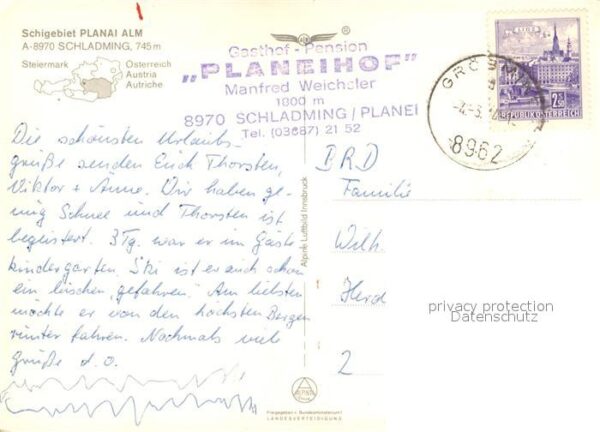 Schigebiet PLANAI ALM
A-8970 SCHLADMING, 745 m
Steiermark
Österreich
Austria
Autriche
Gasthof - Pension
„PLANEIHOF"
Manfred Weichsler
1800 m
8970 SCHLADMING / PLANEI
Tel. (03687) 21 52
2.50
REPUBLIK ÖSTERREICH
GRÖ
8962
Die schönsten Urlaubs-
grüße senden Euch Thorsten,
Viktor + Anne. Wir haben ge-
nug Schnee und Thorsten ist
begeistert. 3 Tg. war er im Gäste
kindergarten. Ski ist er auch schon
ein bischen „gefahren". Am liebsten
möchte er von den höchsten Bergen
runter fahren. Nochmals viele
Grüße d. o.
BRD
Familie
Wilh
Herd
2
Alpine Luftbild Innsbruck
privacy protection
Datenschutz
Freigegeben v. Bundesministerium f.
LANDESVERTEIDIGUNG